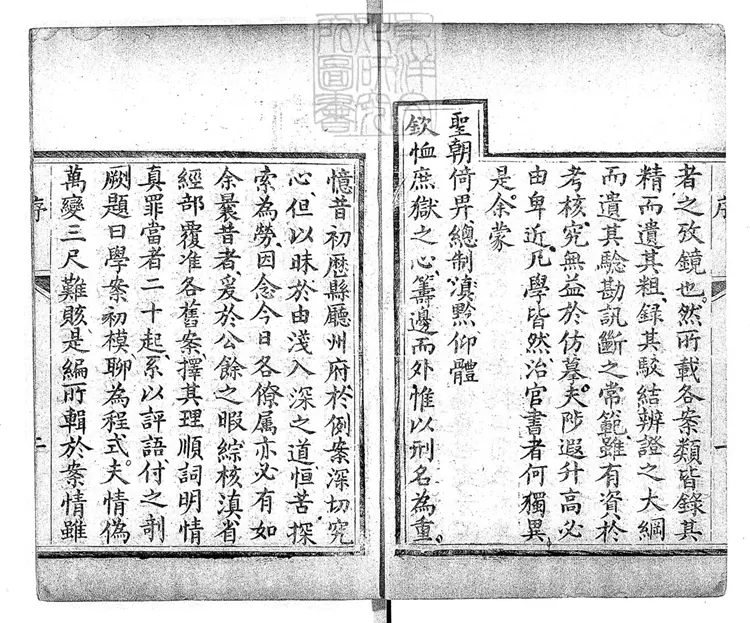 序
者之攷鏡也。然所載各案類皆錄其
精而遺其粗、錄其駁結辨證之大綱
而遺其驗勘訊斷之常範、雖有資於
考核、究無益於仿摹。夫陟遐升高必
由卑近、凡學皆然、治官書者何獨異
是。余蒙
聖朝倚畀總制滇黔、仰體
欽恤庶獄之心、籌邊而外惟以刑名為重。
一
憶昔初歷縣廳州府、於例案深切究
心、但以昧於由淺入深之道、恒苦探
索為勞、因念今日各僚属亦必有如
余曩昔者、爰於公餘之暇綜核滇省
經部覆准各舊案擇其理順詞明情
真罪當者二十起、系以評語付之剞
劂、題曰學案初模、聊為程式。夫情偽
萬變三尺難賅、是編所輯於案情雖
序
二
東洋文化研究所圖書